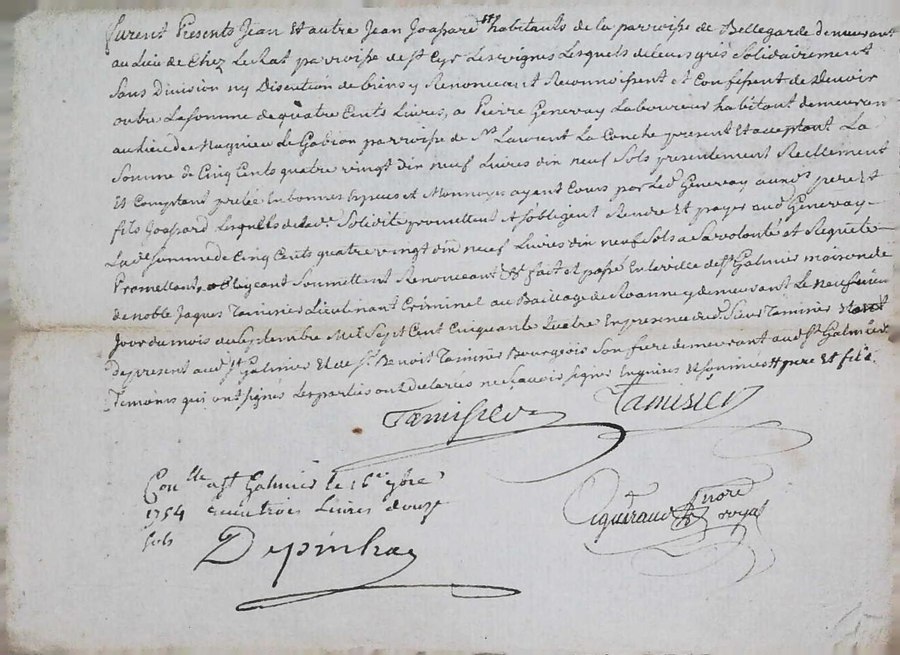 furent Presents Jean et autre Jean Joapard habitants de la parroisse de Bellegarde demeurant
au Lieu de Chez Le Rat parroisse de st Cyr Les vignes Lesquels de leurs grés Solidairement
Sans Division ny Discution de biens y Renonceant Reconnoissent et Confessent de devoir
outre La somme de quatre Cents Livres, a Pierre Genevay Laboureur habitant demeurant
au Lieu de Magnieu Le Gabion parroisse de St Laurent La Conche present et acceptant La
Somme de Cinq Cents quatre vingt dix neuf Livres dix neuf Sols presentement Reellement
Et Comptant pretée En bonnes Especes et Monnoyes ayant Cours par Led. Genevay auxds pere Et
fils Joapard Lesquels de lade Solidité promettent et s'obligent Rendre Et payer aud Genevay
Lade somme de Cinq Cents quatre vingt dix neuf Livres dix neuf Sols a Sa volonté et Requete
Promettant, obligeant Soumettant Renonceant &a fait et passé En la ville de st Galmier maison de
de noble Jaques Tamisier Lieutenant Criminel au Baillage de Roanne y demeurant Le neufvieme
Jour du mois de septembre Mil Sept Cent Cinquante quatre En presence dud. Sieur Tamisier
de present aud st Galmier Et de sr Benoit Tamisier Bourgeois Son frere demeurant aud st Galmier
Temoins qui ont signés Les parties ont declarés ne sçavoir signer Enquises Et Sommées # pere Et fils.
Tamisier Tamisier
Conlle a st Galmier le 16e 7bre
1754 Reçu trois Livres douze
sols
Depinhac
Pigneraud Nore royal